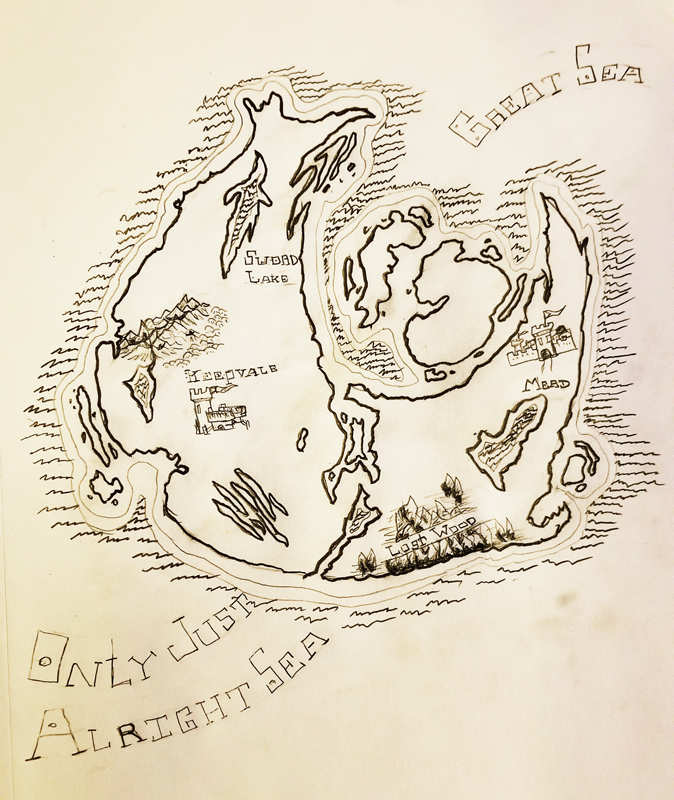 GREAT SEA
SWORD
LAKE
KEEPVALE
MEAD
LOST WOOD
ONLY JUST
ALRIGHT SEA